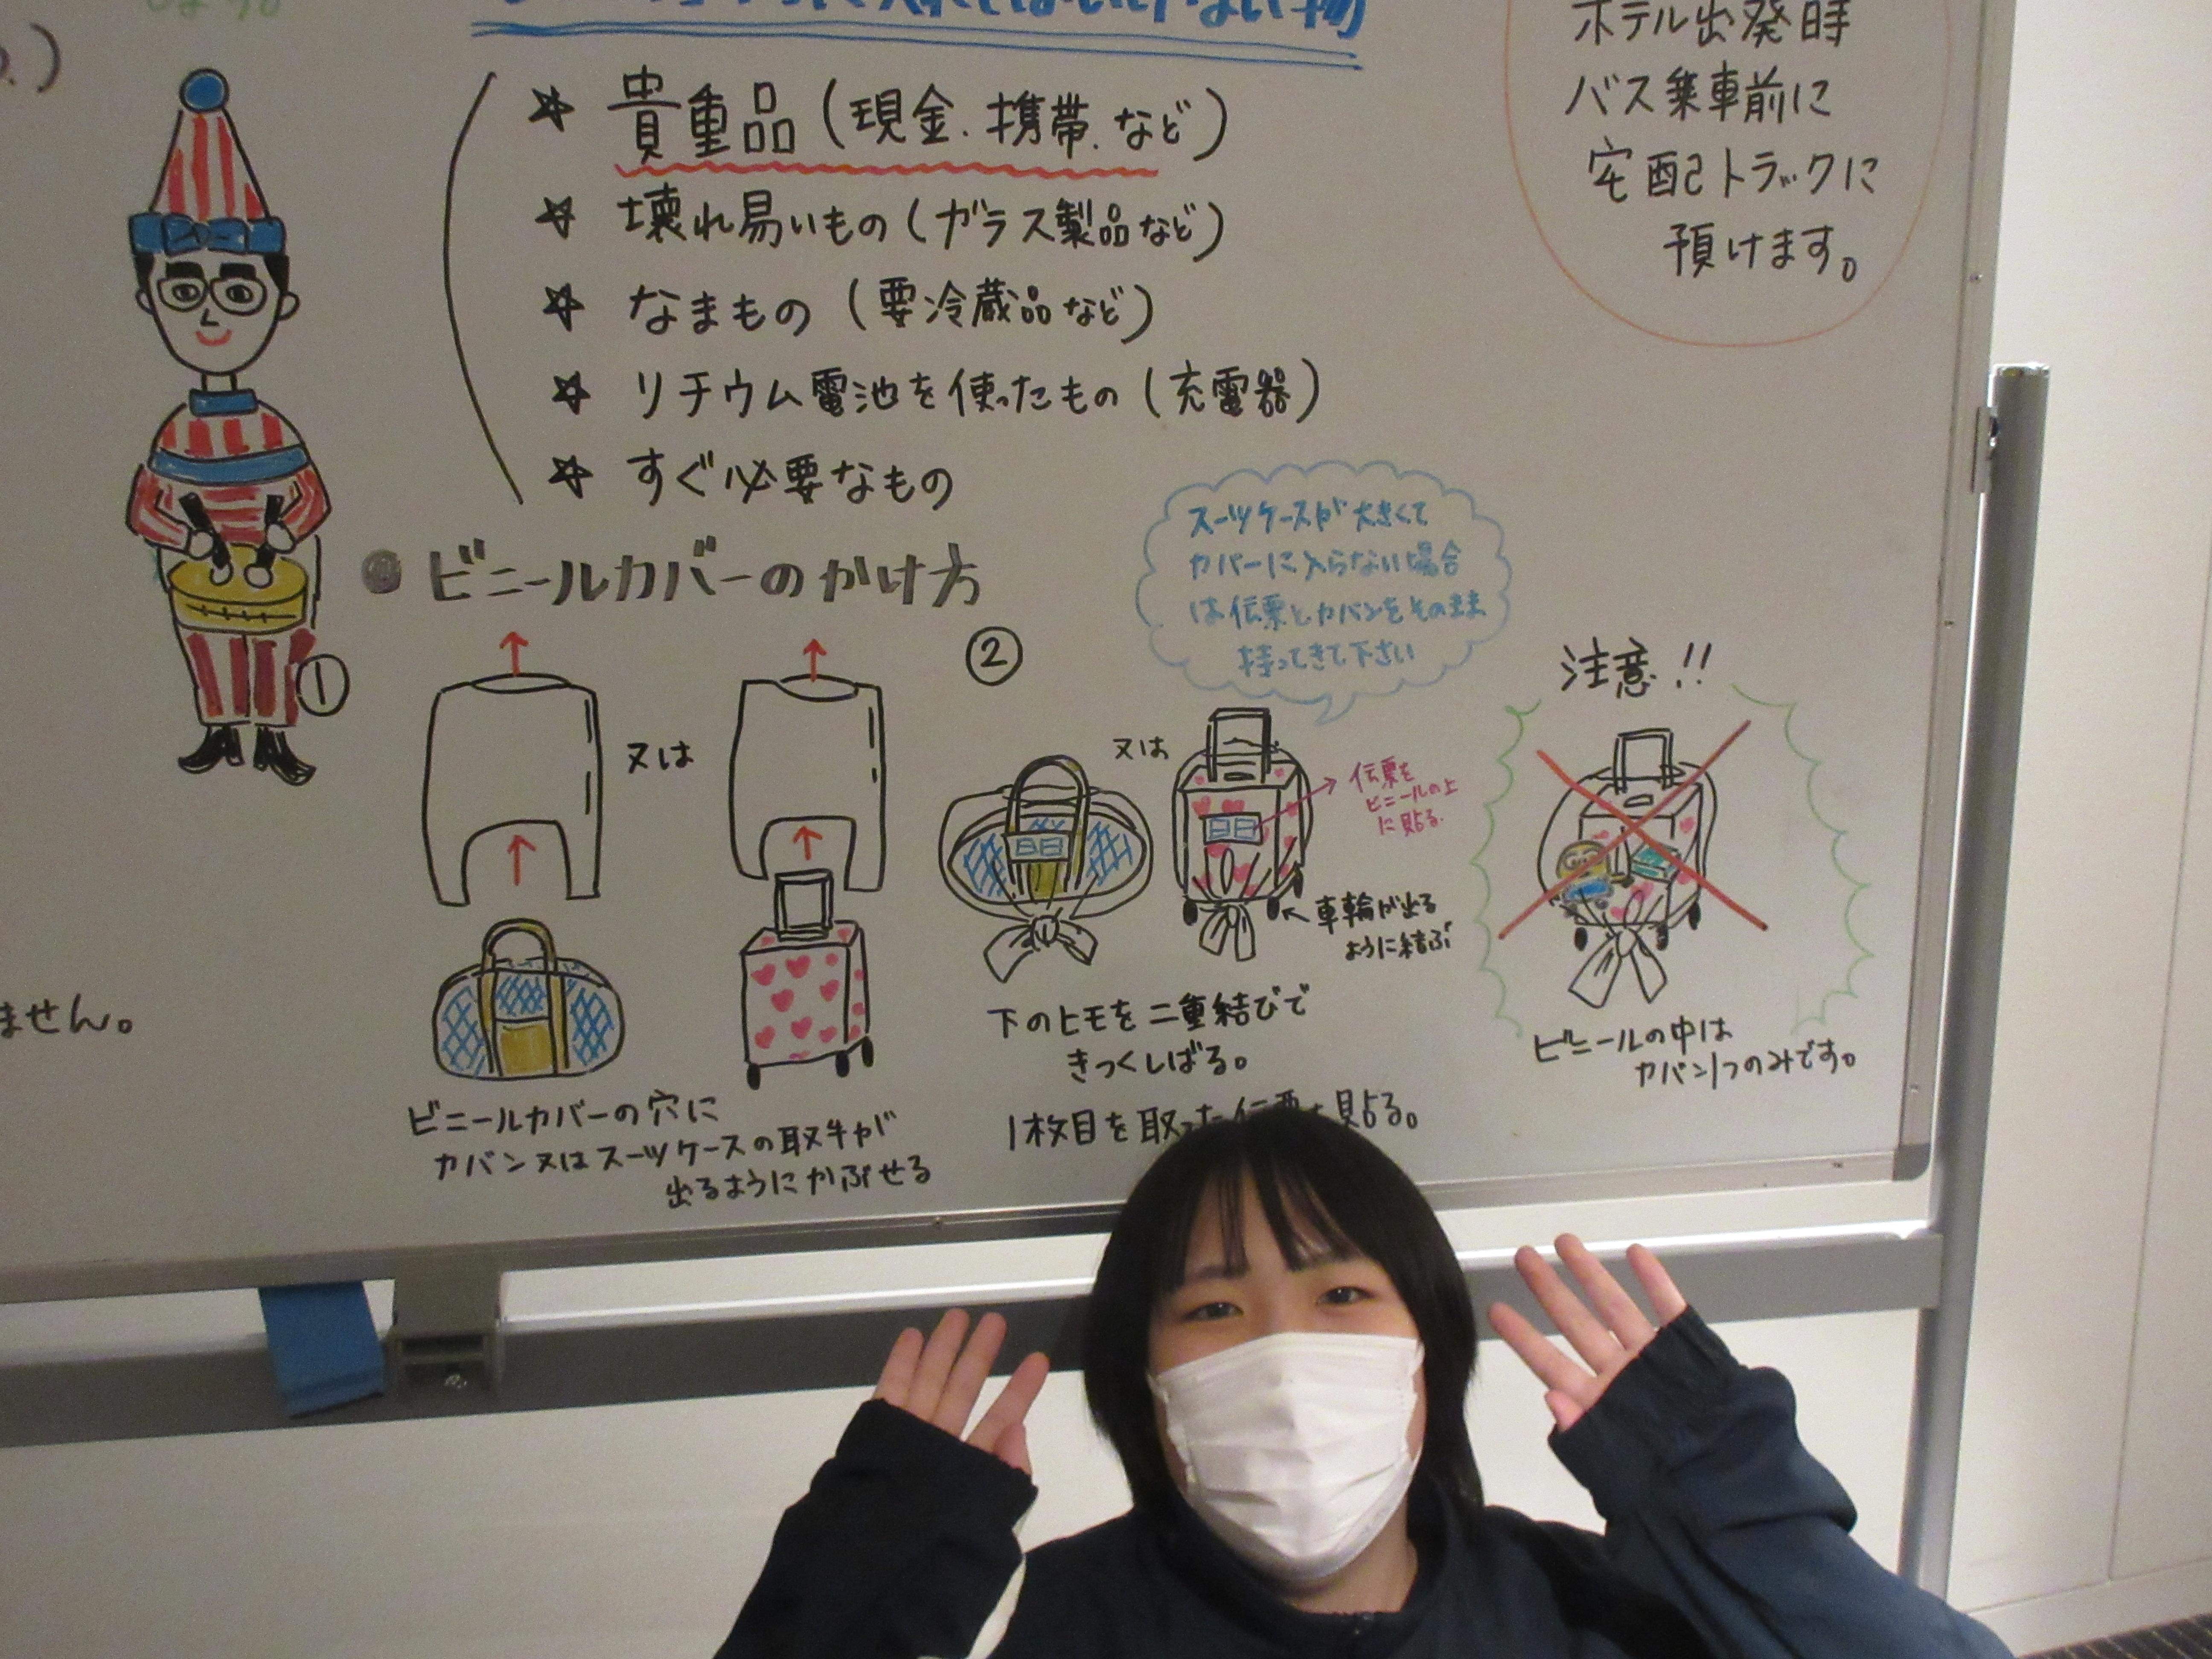 入れてはいけない物
★ 貴重品(現金.携帯.など)
★ 壊れ易いもの(ガラス製品など)
★ なまもの(要冷蔵品など)
★ リチウム電池を使ったもの(充電器)
★ すぐ必要なもの
ホテル出発時
バス乗車前に
宅配トラックに
預けます。
●ビニールカバーのかけ方
スーツケースが大きくて
カバーに入らない場合
は伝票とカバンをそのまま
持ってきて下さい
①
又は
ビニールカバーの穴に
カバン又はスーツケースの取手が
出るようにかぶせる
②
又は
伝票を
ビニールの上
に貼る.
車輪が出る
ように結ぶ
下のヒモを二重結びで
きつくしばる。
1枚目を取った伝票を貼る。
注意!!
ビニールの中は
カバン1つのみです。
ません。